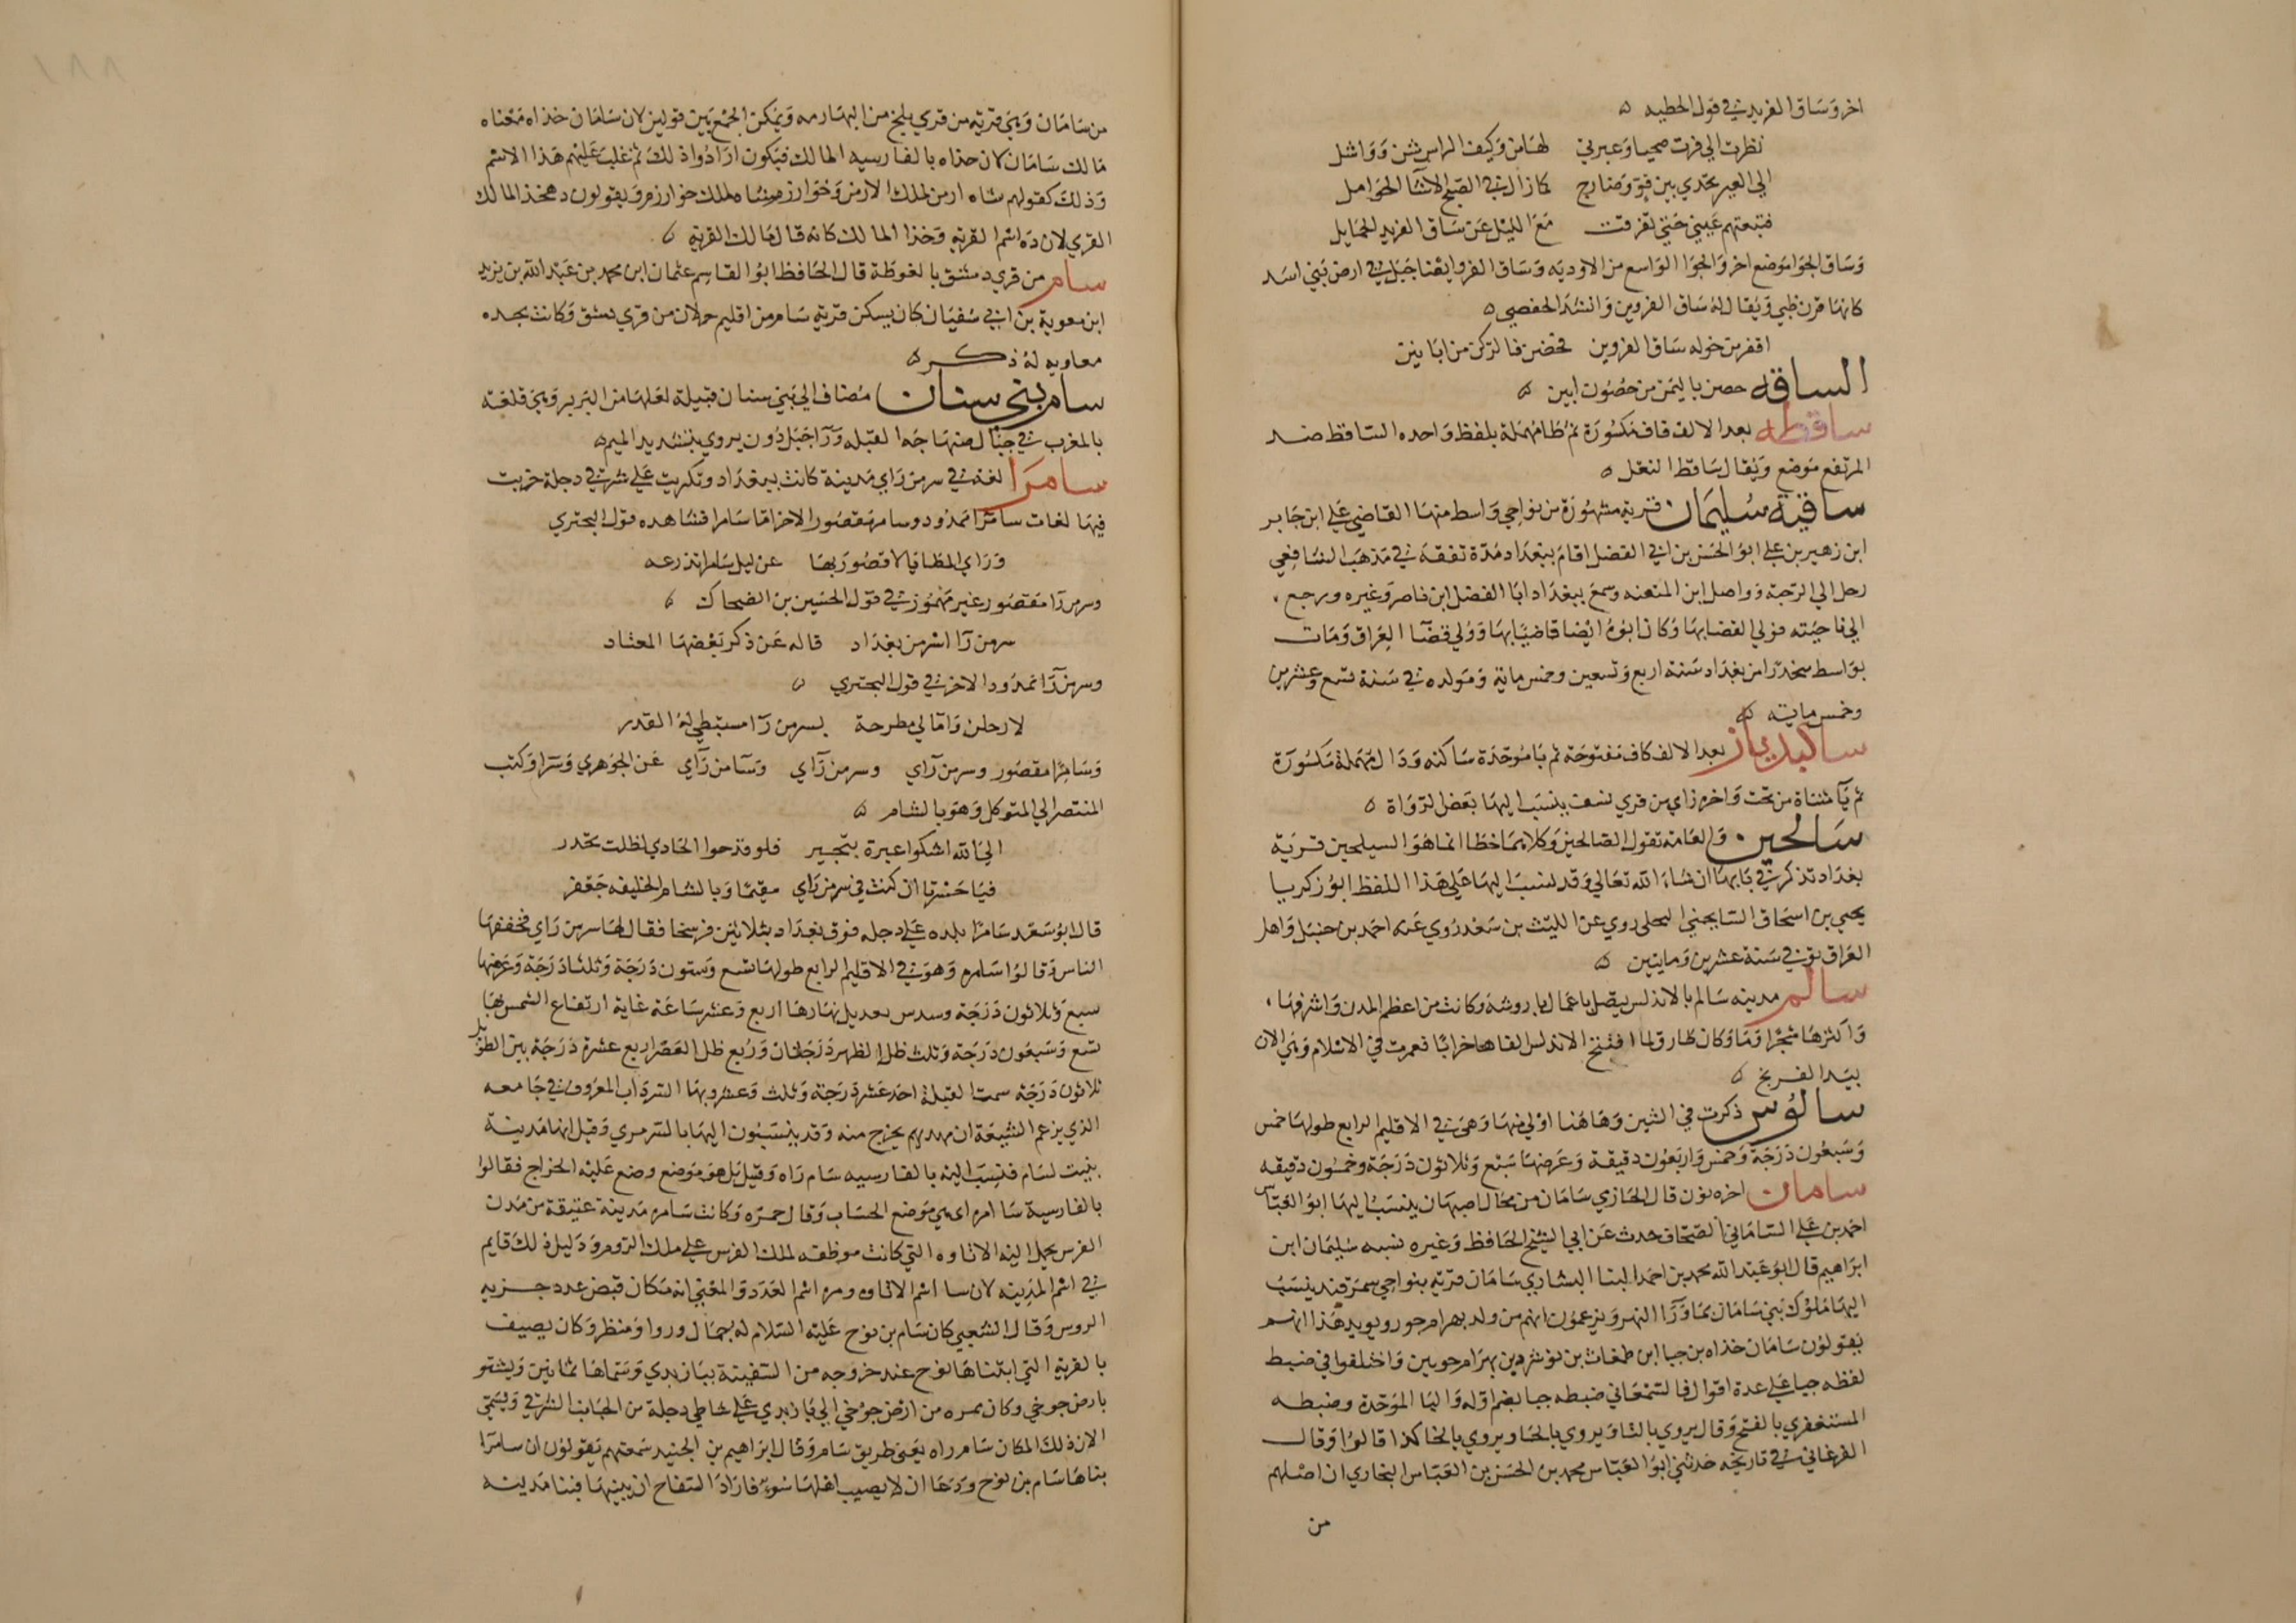 اخر وساق الفريد في قول الحطيه
نظرت الي فوت صحيا وعبرتي لها من وكيف الراس شن وواشل
الي العير تحدي بين قو وضارج كما زال في الصبح الاشآ الحوامل
فتبعتهم عيني حتي تفرقت مع الليل عن ساق الفريد الحمايل
وساق الجوا موضع اخر والجوا الواسع من الاوديه وساق الفرو ايضا جبل في ارض بني اسد
كانها قرن ظبي ويقال له ساق الفروين وانشد الحفصي
اقفر من خوله ساق الفروين فحضن فالركن من ابانين
الساقه حصن باليمن من حصون ابين
ساقطه بعد الالف قاف مكسورة ثم طا مهملة بلفظ واحده الساقط ضد
المرتفع موضع ويقال ساقط النعل
ساقية سليمان قرية مشهورة من نواحي واسط منها القاضي علي ابن جابر
ابن زهير بن علي ابو الحسن بن ابي الفضل اقام ببغداد مدة تفقه في مذهب الشافعي
رحل الي الرحبة وواصل ابن المتعنه وسمع ببغداد ابا الفضل ابن ناصر وغيره ورجع
الي ناحيته فولي القضا بها وكان ابوه ايضا قاضيا بها وولي قضآ العراق ومات
بواسط منحدرا من بغداد سنة اربع وتسعين وخمس ماية ومولده في سنة تسع وعشرين
وخمس مايته
ساكبديان بعد الالف كاف مفتوحة ثم با موحدة ساكنه ودال مهملة مكسورة
ثم يآ مثناة من تحت واخره زاي من قري نسف ينسب اليها بعض الرواة
سالحين والعامة تقول الصالحين وكلاهما خطا انما هو السيلحين قرية
بغداد تذكر في بابها ان شاء الله تعالي وقد نسب اليها علي هذا اللفظ ابو زكريا
يحيي بن اسحاق السالحيني البجلي روي عن الليث بن سعد روي عنه احمد بن حنبل واهل
العراق توفي سنة عشرين ومايتين
سالم مدينه سالم بالاندلس يتصل باعمال باروشة وكانت من اعظم المدن واشرفها
واكثرها شجرا وما وكان طارق لما افتتح الاندلس الفاها خرابا فعمرت في الاسلام وهي الان
بيد الفرنج
سالوس ذكرت في الشين وهاهنا اولي منها وهي في الاقليم الرابع طولها خمس
وسبعون درجة وخمس واربعون دقيقة وعرضها سبع وثلاثون درجة وخمسون دقيقه
سامان اخره نون قال الحازمي سامان من محال اصبهان ينسب اليها ابو العباس
احمد بن علي الساماني الصحاف حدث عن ابي الشيخ الحافظ وغيره نسبه سليمان ابن
ابراهيم قال ابو عبد الله محمد بن احمد البنا البشاري سامان قرية بنواحي سمرقند ينسب
اليها ملوك بني سامان بما ورآ النهر ويزعمون انهم من ولد بهرام جور ويويد هذا انهم
يقولون سامان خذاه بن جبا ابن طمغاث بن نوشرد بن بهرام جوبين واختلفوا في ضبط
لفظه جبا علي عدة اقوال فالسمعاني ضبطه جبا بضم اوله والبا الموحدة وضبطه
المستغفري بالفتح وقال يروي بالتا ويروي بالحا ويروي بالخا كذا قالوا وقال
الفرغاني في تاريخه حدثني ابو العباس محمد بن الحسن بن العباس البخاري ان اصلهم
من
١٨٨
من سامان وهي قرية من قري بلخ من البهارمه ويمكن الجمع بين قولين لان سامان خذاه معناه
مالك سامان لان خذاه بالفارسيه المالك فيكون ارادوا ذلك ثم غلب عليهم هذا الاسم
وذلك كقولهم شاه ارمن لملك الارمن وخوارزمشاه لملك خوارزم ويقولون دهخذا لمالك
القري لان ده اسم القرية وخذا المالك كانه قال مالك القرية
سام من قري دمشق بالغوطة قال الحافظ ابو القاسم عثمان ابن محمد بن عبد الله بن يزيد
ابن معوية بن ابي سفيان كان يسكن قرية سام من اقليم حولان من قري دمشق وكانت بجده
معاويه له ذكر
سام بني سنان مضاف الي بني سنان قبيلة لعلها من البربر وهي قلعة
بالمغرب في جبال صنهاجه القبله ورآ جبل درن يروي بتشديد الميم
سامرا لغة في سرمن راي مدينة كانت بين بغداد وتكريت علي شرقي دجلة خربت
فيها لغات سامرا ممدود وسامر مقصور الاخر اما سامرا فشاهده قول البحتري
وراي المطايا لا قصور بها عن ليل سامرا تذرعه
وسرمن را مقصور غير مهموز في قول الحسين بن الضحاك
سرمن رآ اسر من بغداد فاله عن ذكر بعضها المعتاد
وسرمن رآ ممدود الاخر في قول البحتري
لارحلن وامالي مطرحة بسرمن رآ مستبطي له القدر
وسامرا مقصور وسرمن رآي وسرمن رآي وسآ من رآي عن الجوهري وسرا وكتب
المنتصر الي المتوكل وهو بالشام
الي الله اشكوا عبرة تتحير فلو قد حدا الحادي لظلت تحدر
فيا حسرتا ان كنت في سرمن راي مقيما وبالشام الخليفه جعفر
قال ابو سعد سامرا بلده علي دجله فوق بغداد بثلاثين فرسخا فقال لها سرمن راي فخففها
الناس وقالوا سامره وهو في الاقليم الرابع طولها تسع وستون درجة وثلثا درجة وعرضها
سبع وثلاثون درجة وسدس تعديل نهارها اربع وعشر ساعة غاية ارتفاع الشمس بها
تسع وسبعون درجة وثلث ظل الظهر درجتان وربع ظل العصر اربع عشرة درجة بين الطولين
ثلاثون درجة سمت القبلة احد عشر درجة وثلث وعشر وبها السرداب المعروف في جامعه
الذي يزعم الشيعة ان مهديهم يخرج منه وقد ينسبون اليها بالسرمري وقيل انها مدينة
بنيت لسام فنسب اليه بالفارسيه سام راه وقيل بل هو موضع وضع عليه الخراج فقالوا
بالفارسية سا امره اي هي موضع الحساب وقال حمزه وكانت سامره مدينة عتيقة من مدن
الفرس يحمل اليه الاتاوه التي كانت موظفه لملك الفرس علي ملك الروم ودليل ذلك قايم
في اسم المدينه لان سا اسم الاتاوه ومره اسم العدد والمعني انه مكان قبض عدد جزيه
الروس وقال الشعبي كان سام بن نوح عليه السلام له جمال وروا ومنظر وكان يصيف
بالقرية التي ابتناها نوح عند خروجه من السفينة ببازبدي وسماها ثمانين ويشتو
بارض جوخي وكان ممره من ارض جوخي الي بازبدي علي شاطي دجلة من الجانب الشرقي ويسمي
الان ذلك المكان سام راه يعني طريق سام وقال ابراهيم بن الجنيد سمعتهم يقولون ان سامرا
بناها سام بن نوح ودعا ان لا يصيب اهلها سوء فاراد السفاح ان يبنيها فبنا مدينه